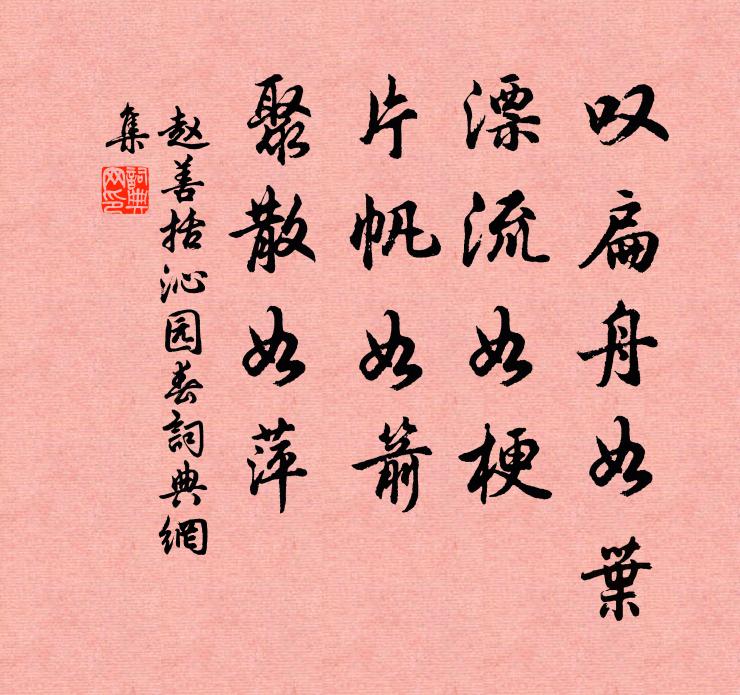 叹扁舟如葉
漂流如梗
片帆如箭
聚散如萍
赵善括沁园春詞典網
集
詞典
网印